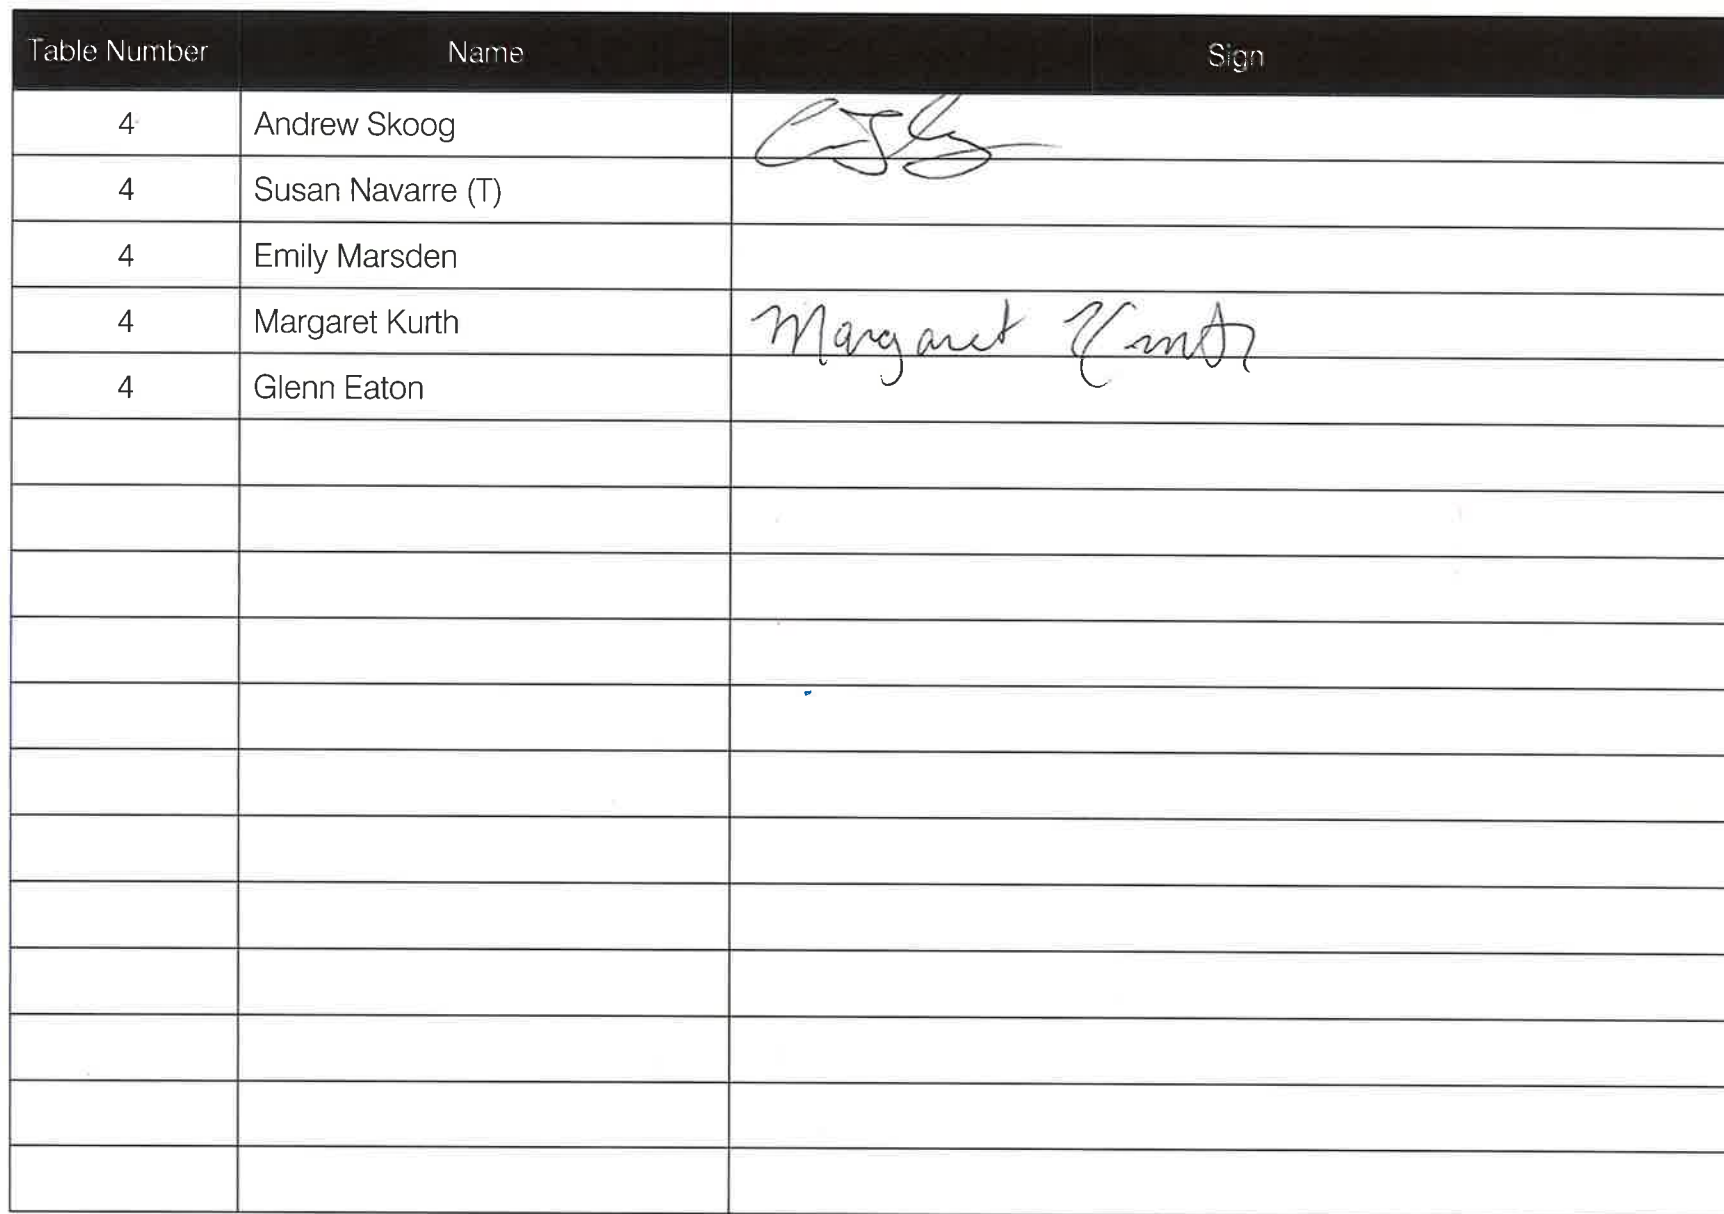 Table Number Name Sign
4 Andrew Skoog
4 Susan Navarre (T)
4 Emily Marsden
4 Margaret Kurth Margaret Kurth
4 Glenn Eaton